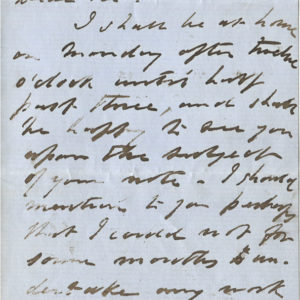 Dear Sir.
I shall be at home
on Monday after twelve
o'clock until half
past three, and shall
be happy to see you
upon the subject
of your note. I should
mention to you perhaps
that I could not for
some months to un-
dertake any work